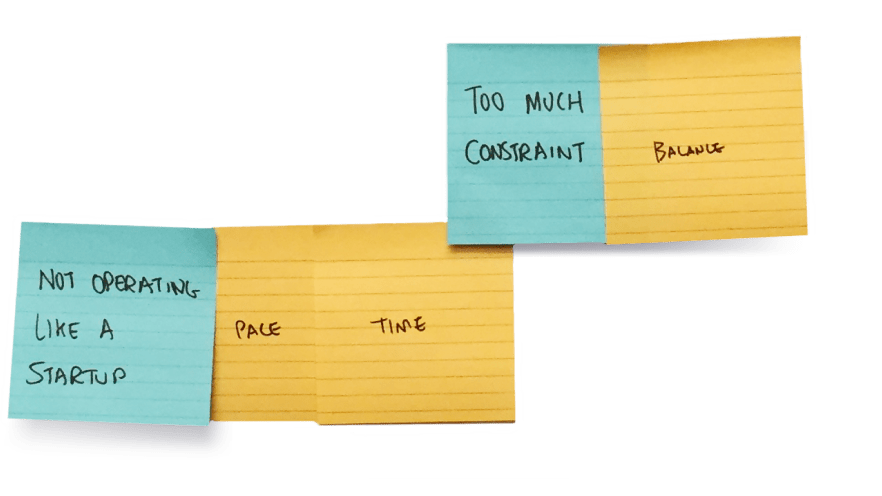 TOO MUCH
CONSTRAINT
BALANCE
NOT OPERATING
LIKE A
STARTUP
PACE
TIME